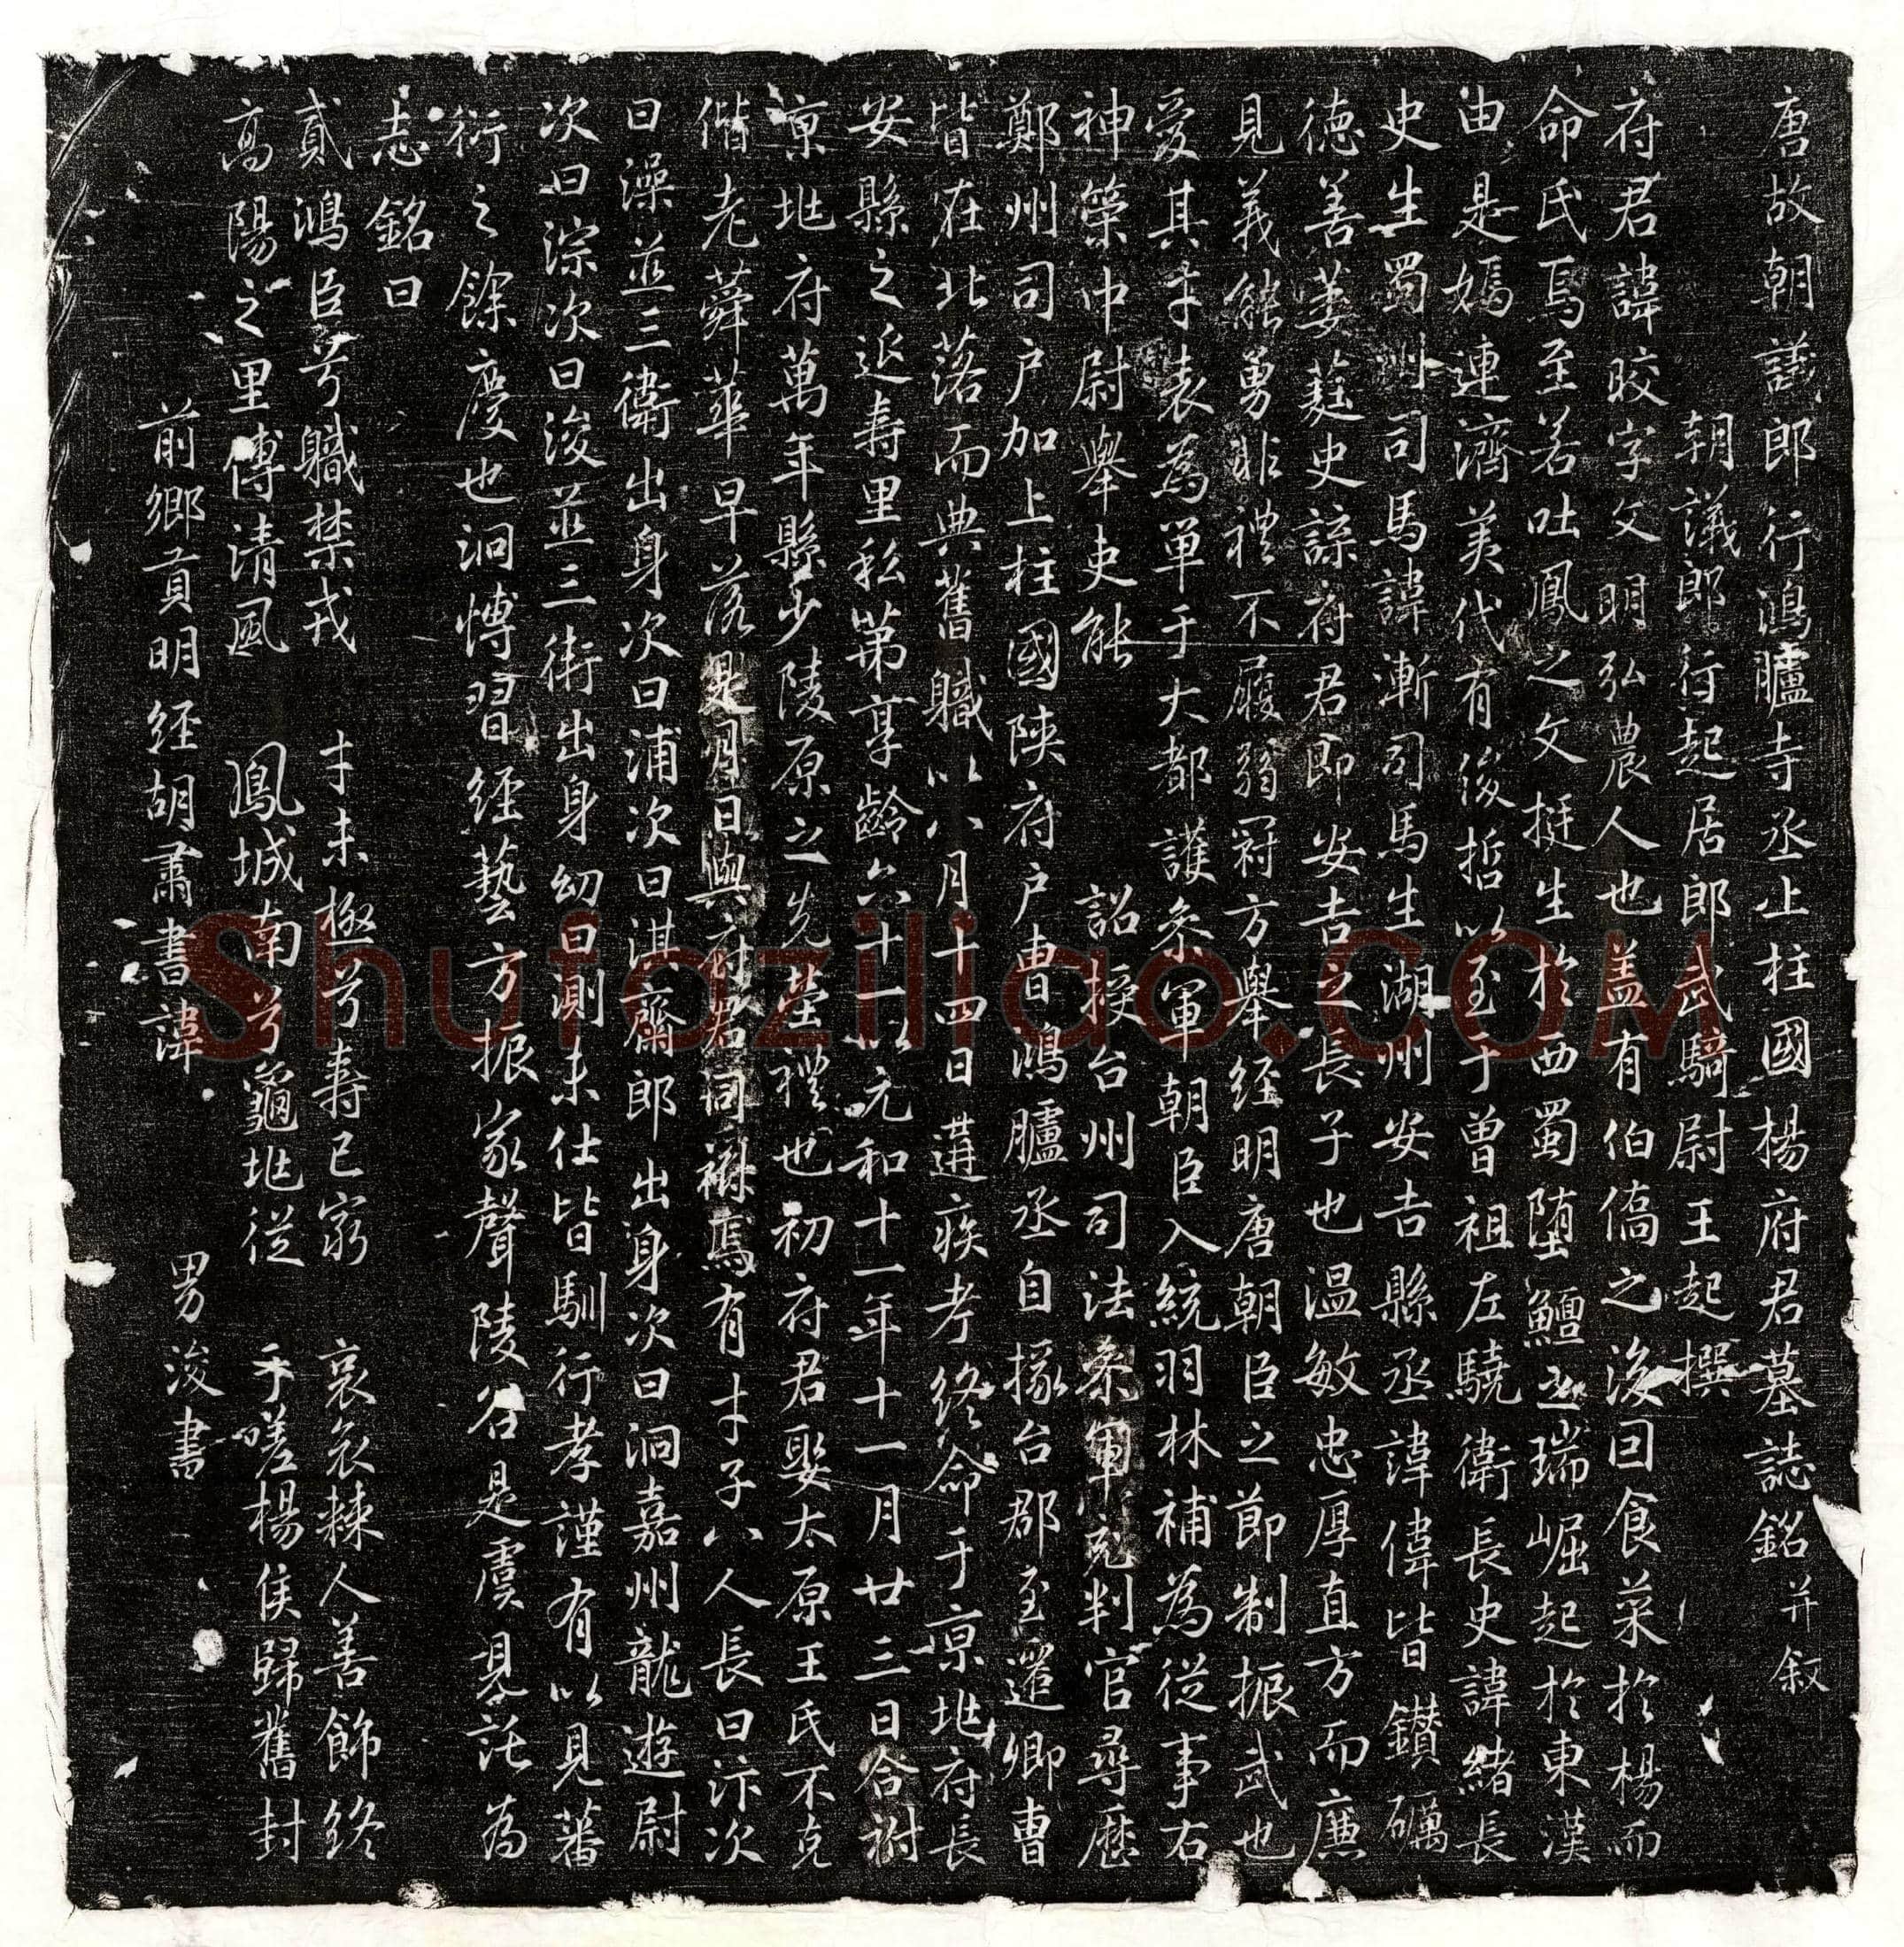 唐故朝議郎行鴻臚寺丞上柱國楊府君墓誌銘并叙
朝議郎行起居郎武騎尉王起撰
府君諱晈字文明弘農人也盖有伯僑之後曰食菜於楊而
命氏焉至若吐鳳之文挺生於西蜀堕鱣之瑞崛起於東漢
由是嫣連濟美代有俊哲以至于曾祖左驍衛長史諱緒長
史生蜀州司馬諱漸司馬生湖州安吉縣丞諱偉皆鑚礪
徳善萋莚史諒府君即安吉之長子也温敏忠厚直方而廉
見義能勇非禮不履弱冠方舉經明唐朝臣之節制振武也
愛其才表為單于大都護叅軍朝臣入統羽林補為從事右
神榮中尉舉吏能詔授台州司法叅軍充判官尋歷
鄭州司户加上柱國陝府户曹鴻臚丞自掾台郡至遷卿曹
皆在北落而典舊職以八月十四日遘疾考終命于京兆府長
安縣之延壽里私第享齡六十一以元和十一年十一月廿三日合祔
京兆府萬年縣少陵原之先塋禮也初府君娶太原王氏不克
偕老蕣華早落是月日與府君同祔焉有才子八人長曰汴次
曰澡並三衛出身次曰浦次曰淇齋郎出身次曰泂嘉州龍遊尉
次曰淙次曰浚並三衛出身幼曰測未仕皆馴行孝謹有以見蕃
衍之餘慶也泂愽習經藝方振家聲陵谷是虞見託為
志銘曰
貳鴻臣兮職禁戎　才未極兮壽已窮　哀哀棘人善飾終
高陽之里傳清風　鳳城南兮龜兆從　于嗟楊侯歸舊封
前鄉貢明經胡肅書諱　男浚書
Shufaziliao.COM